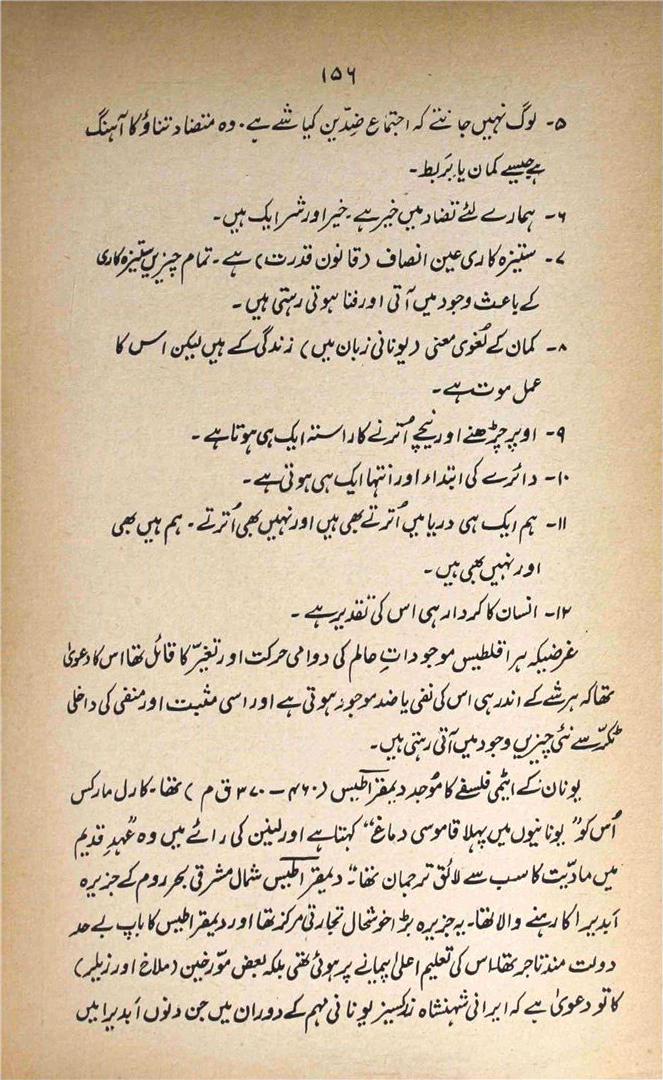 ۱۵۶
۵- لوگ نہیں جانتے کہ اجتماع ضِدّین کیا شے ہے۔ وہ متضاد تناؤ کا آہنگ
ہے جیسے کمان یا بَربط۔
۶- ہمارے لئے تضاد میں خیر ہے۔ خیر اور شر ایک ہیں۔
۷- ستیزہ کاری عین انصاف (قانون قدرت) ہے۔ تمام چیزیں ستیزہ کاری
کے باعث وجود میں آتی اور فنا ہوتی رہتی ہیں۔
۸- کمان کے لُغوی معنی (یونانی زبان میں) زندگی کے ہیں لیکن اس کا
عمل موت ہے۔
۹- اوپر چڑھنے اور نیچے اُترنے کا راستہ ایک ہی ہوتا ہے۔
۱۰- دائرے کی ابتداء اور انتہا ایک ہی ہوتی ہے۔
۱۱- ہم ایک ہی دریا میں اُترتے بھی ہیں اور نہیں بھی اُترتے۔ ہم ہیں بھی
اور نہیں بھی ہیں۔
۱۲- انسان کا کردار ہی اس کی تقدیر ہے۔
غرضیکہ ہراقلطیس موجوداتِ عالم کی دوامی حرکت اور تغیّر کا قائل تھا اس کا دعویٰ
تھا کہ ہر شے کے اندر ہی اس کی نفی یا ضد موجود ہوتی ہے اور اسی مثبت اور منفی کی داخلی
ٹکّر سے نئی چیزیں وجود میں آتی رہتی ہیں۔
یونان کے ایٹمی فلسفے کا مُوجد دیمقراطیس (۴۶۰ – ۳۷۰ ق م) تھا۔ کارل مارکس
اُس کو ”یونانیوں میں پہلا قاموسی دماغ“ کہتا ہے اور لینین کی رائے میں وہ ”عہدِ قدیم
میں مادیّت کا سب سے لائق ترجمان تھا“۔ دیمقراطیس شمال مشرقی بحر روم کے جزیرہ
اَبدیرا کا رہنے والا تھا۔ یہ جزیرہ بڑا خوشحال تجارتی مرکز تھا اور دیمقراطیس کا باپ بے حد
دولت مند تاجر تھا۔ اس کی تعلیم اعلیٰ پیمانے پر ہوئی تھی بلکہ بعض مورّخین (ملاخ اور زیلیر)
کا تو دعویٰ ہے کہ ایرانی شہنشاہ زرکسیز یونانی مہم کے دوران میں جن دنوں اَبدیرا میں